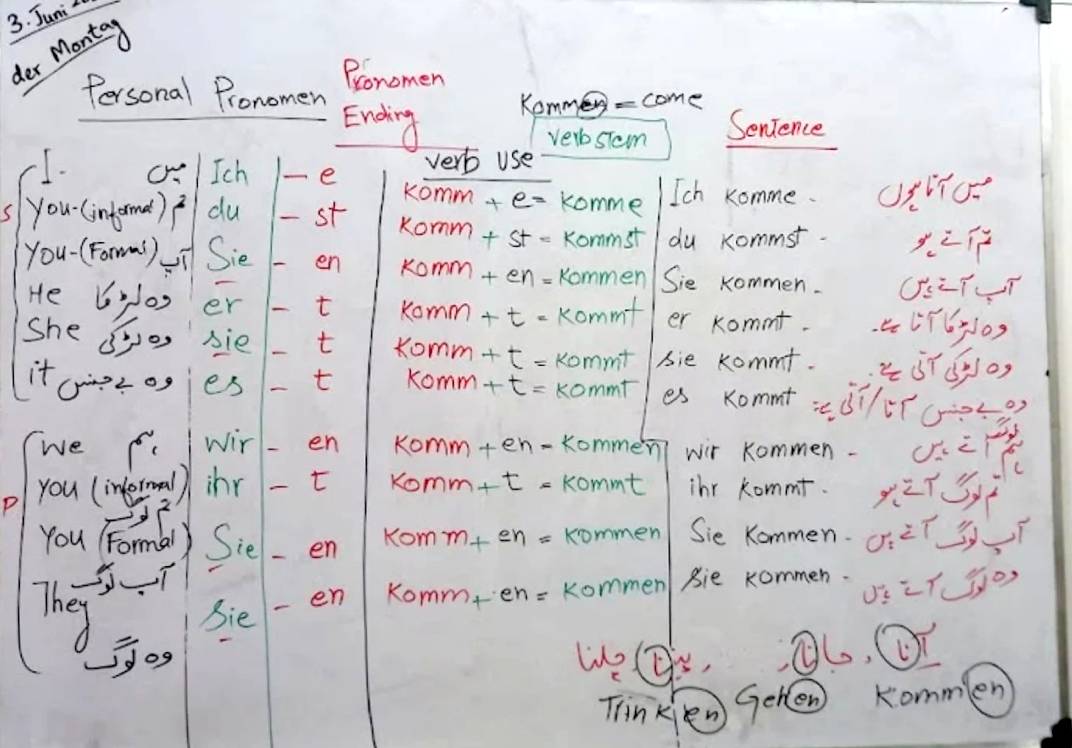 3. Juni
der Montag
Personal Pronomen
Pronomen Ending
Kommen = come
verb stem
verb use
Sentence
S
I. میں Ich – e Komm + e = Komme Ich Komme. میں آتا ہوں
You-(informal) تم du – st Komm + st = Kommst du Kommst. تم آتے ہو
You-(Formal) آپ Sie – en Komm + en = Kommen Sie Kommen. آپ آتے ہیں
He وہ لڑکا er – t Komm + t = Kommt er Kommt. وہ لڑکا آتا ہے۔
She وہ لڑکی sie – t Komm + t = Kommt sie Kommt. وہ لڑکی آتی ہے۔
it وہ بے جنس es – t Komm + t = Kommt es Kommt وہ بے جنس آتا/آتی ہے۔
P
We ہم wir – en Komm + en = Kommen wir Kommen. ہم لوگ آتے ہیں
you (informal) تم لوگ ihr – t Komm + t = Kommt ihr Kommt. تم لوگ آتے ہو
You (Formal) آپ لوگ Sie – en Komm + en = Kommen Sie Kommen. آپ لوگ آتے ہیں
They وہ لوگ sie – en Komm + en = Kommen sie Kommen. وہ لوگ آتے ہیں
آنا، جانا، پینا، چلنا
Trinken Gehen Kommen